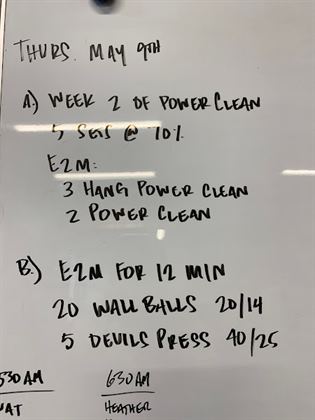 THURS. MAY 9TH
A.) WEEK 2 OF POWER CLEAN
5 SETS @ 70%
E2M:
3 HANG POWER CLEAN
2 POWER CLEAN
B.) E2M FOR 12 MIN
20 WALL BALLS 20/14
5 DEVILS PRESS 40/25
530AM 630AM
HEATHER